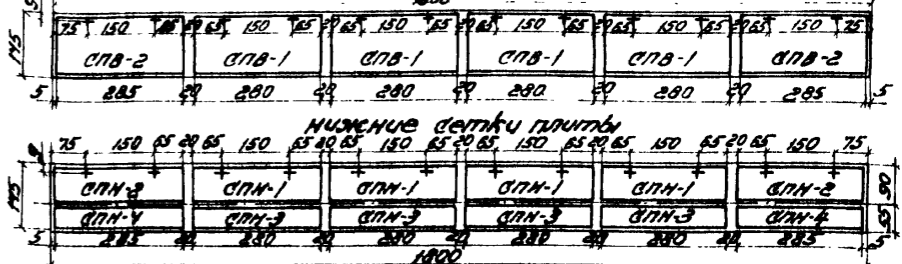 75 150 65 20 65 150 65 20 65 150 65 20 65 150 65 20 65 150 65 20 65 150 75
145 СПВ-2 СПВ-1 СПВ-1 СПВ-1 СПВ-1 СПВ-2
5 285 20 280 20 280 20 280 20 280 20 285 5
нижние сетки плиты
75 150 65 20 65 150 65 20 65 150 65 20 65 150 65 20 65 150 65 20 65 150 75
145 СПН-2 СПН-1 СПН-1 СПН-1 СПН-1 СПН-2 90
СПН-4 СПН-3 СПН-3 СПН-3 СПН-3 СПН-4 55
5 285 20 280 20 280 20 280 20 280 20 285 5
1800